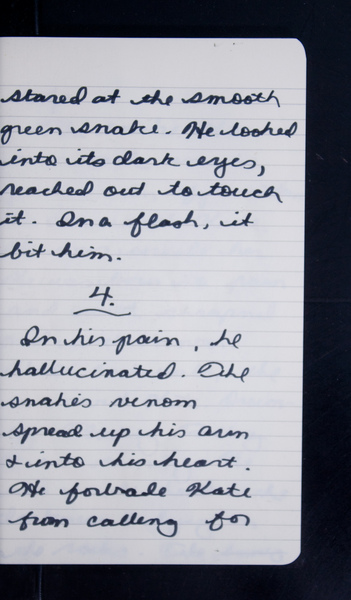 stared at the smooth
green snake. He looked
into its dark eyes,
reached out to touch
it. In a flash, it
bit him.
4.
In his pain, he
hallucinated. The
snake's venom
spread up his arm
& into his heart.
He forbade Kate
from calling for